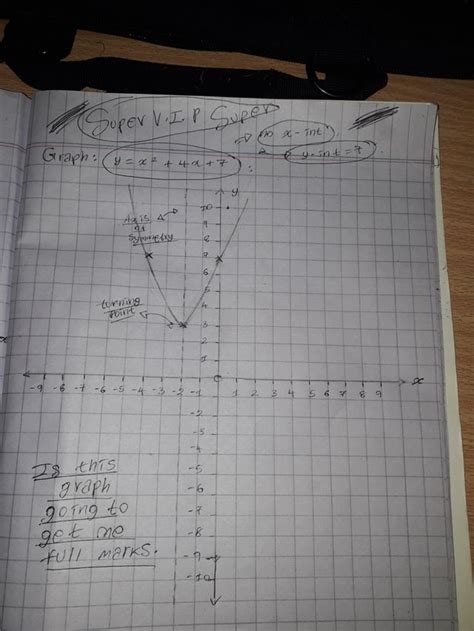 Super V.I.P Super
no x-int.
& y-int = 7
Graph: y = x² + 4x + 7 :
y
Axis
of
Symmetry
10
9
8
7
6
5
4
3
2
1
turning
Point
0
-9 -8 -7 -6 -5 -4 -3 -2 -1 1 2 3 4 5 6 7 8 9 x
-2
-3
-4
-5
-6
-7
-8
-9
-10
Is this
graph
going to
get me
full marks.